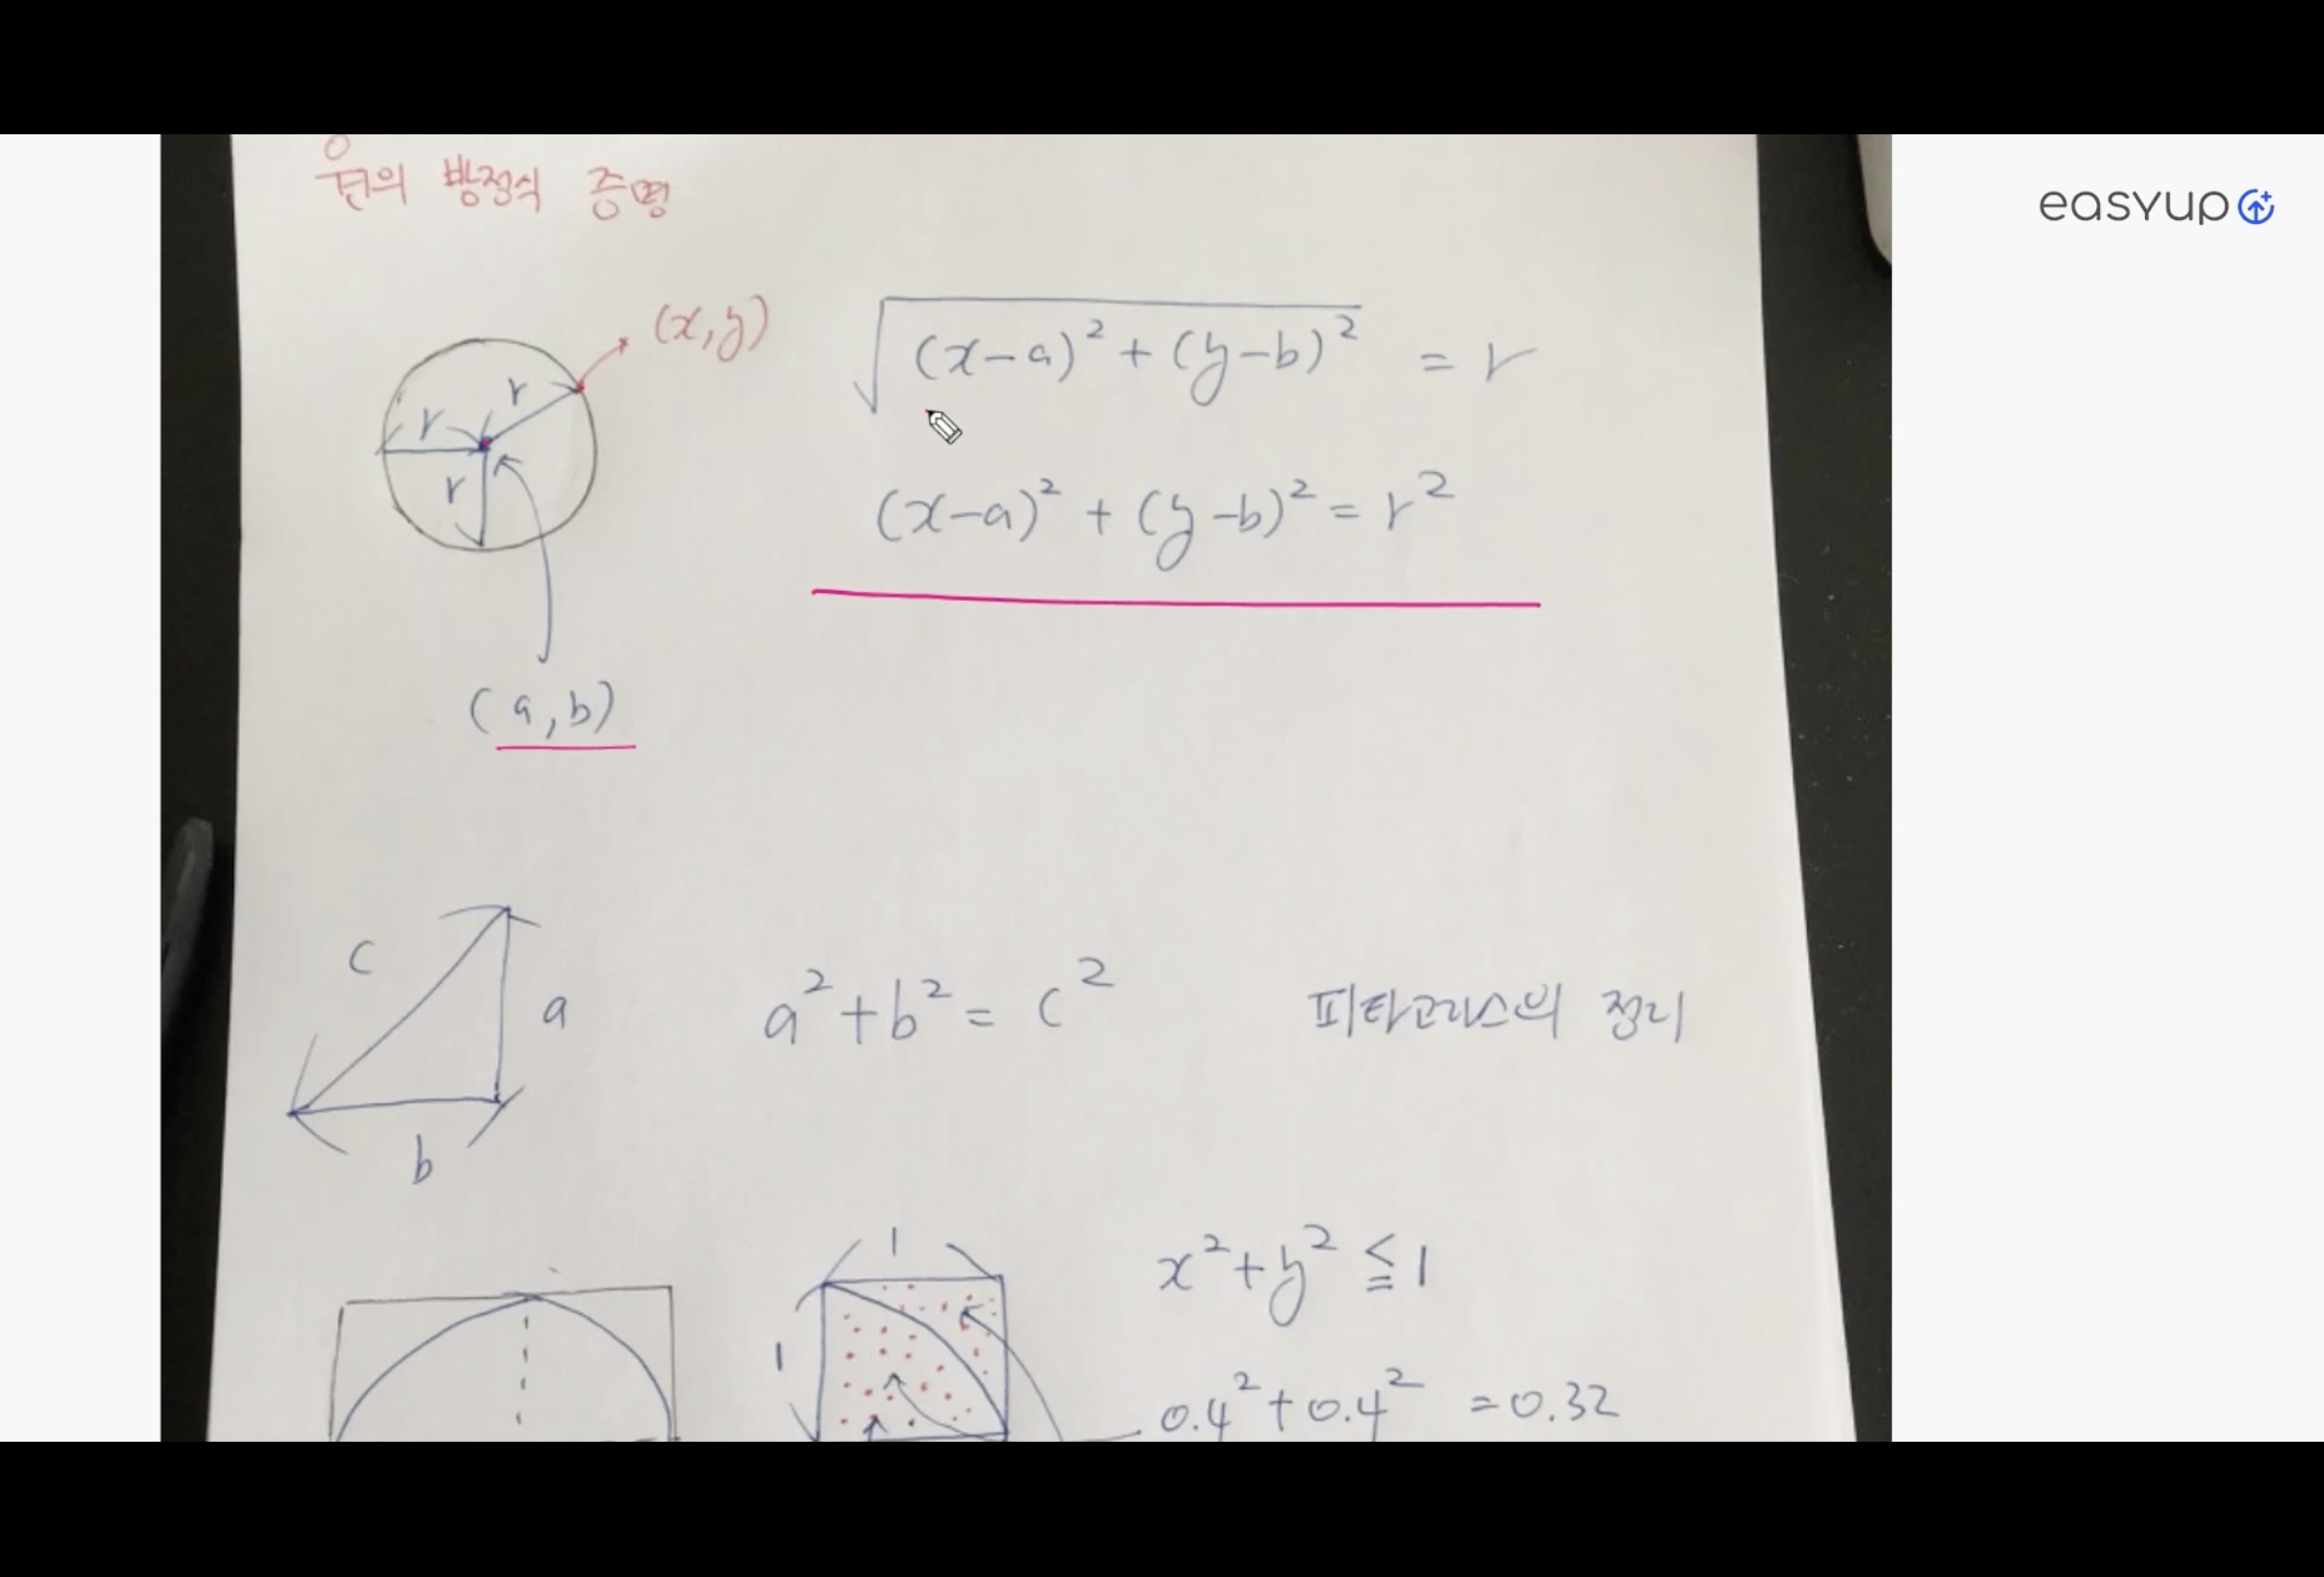 원의 방정식 증명
easyup
(x,y)
√(x-a)² + (y-b)² = r
r
r
r
(x-a)² + (y-b)² = r²
(a,b)
c
a
a² + b² = c²
피타고라스의 정리
b
1
x² + y² ≦ 1
1
0.4² + 0.4² = 0.32